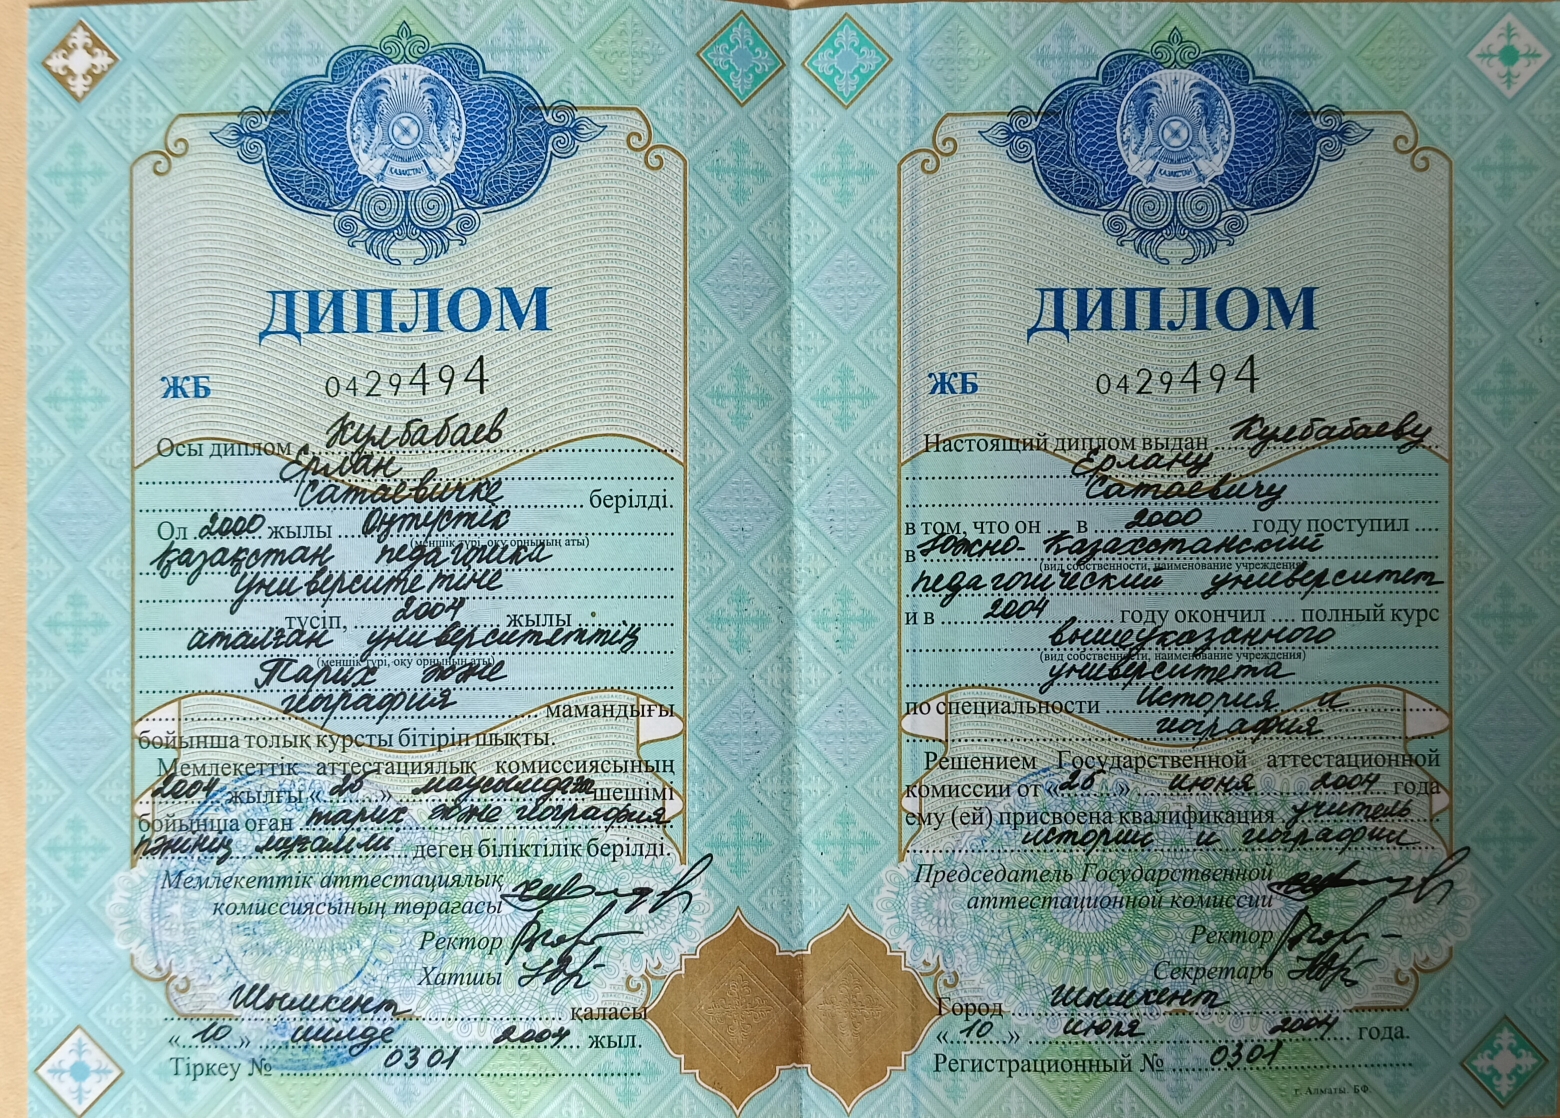 ҚАЗАҚСТАН
ДИПЛОМ
ЖБ 0429494
Осы диплом Кулбабаев
Ерлан
Сатаевичке берілді.
Ол 2000 жылы Оңтүстік
(меншік түрі, оқу орнының аты)
Қазақстан педагогика
университетіне
түсіп, 2004 жылы
аталған университеттің
(меншік түрі, оқу орнының аты)
Тарих және
география мамандығы
бойынша толық курсты бітіріп шықты.
Мемлекеттік аттестациялық комиссиясының
2004 жылғы «25» маусымдағы шешімі
бойынша оған тарих және география
пәнінің мұғалімі деген біліктілік берілді.
Мемлекеттік аттестациялық
комиссиясының төрағасы
Ректор
Хатшы
Шымкент қаласы
«10» шілде 2004 жыл.
Тіркеу № 0301
ҚАЗАҚСТАН
ДИПЛОМ
ЖБ 0429494
Настоящий диплом выдан Кулбабаеву
Ерлану
Сатаевичу
в том, что он в 2000 году поступил
в Южно-Казахстанский
(вид собственности, наименование учреждения)
педагогический университет
и в 2004 году окончил полный курс
вышеуказанного
(вид собственности, наименование учреждения)
университета
по специальности История и
география
Решением Государственной аттестационной
комиссии от «25» июня 2004 года
ему (ей) присвоена квалификация учитель
истории и географии
Председатель Государственной
аттестационной комиссии
Ректор
Секретарь
Город Шымкент
«10» июля 2004 года.
Регистрационный № 0301
г. Алматы. БФ.